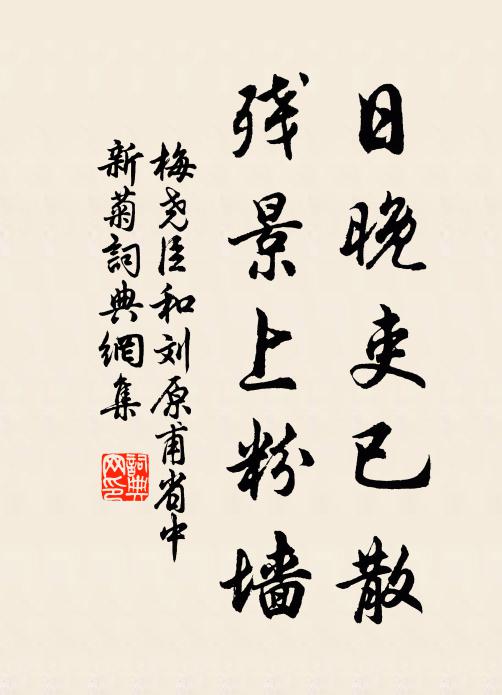 日晚吏已散
残景上粉墙
梅尧臣和刘原甫省中
新菊詞典網集
詞典
网印